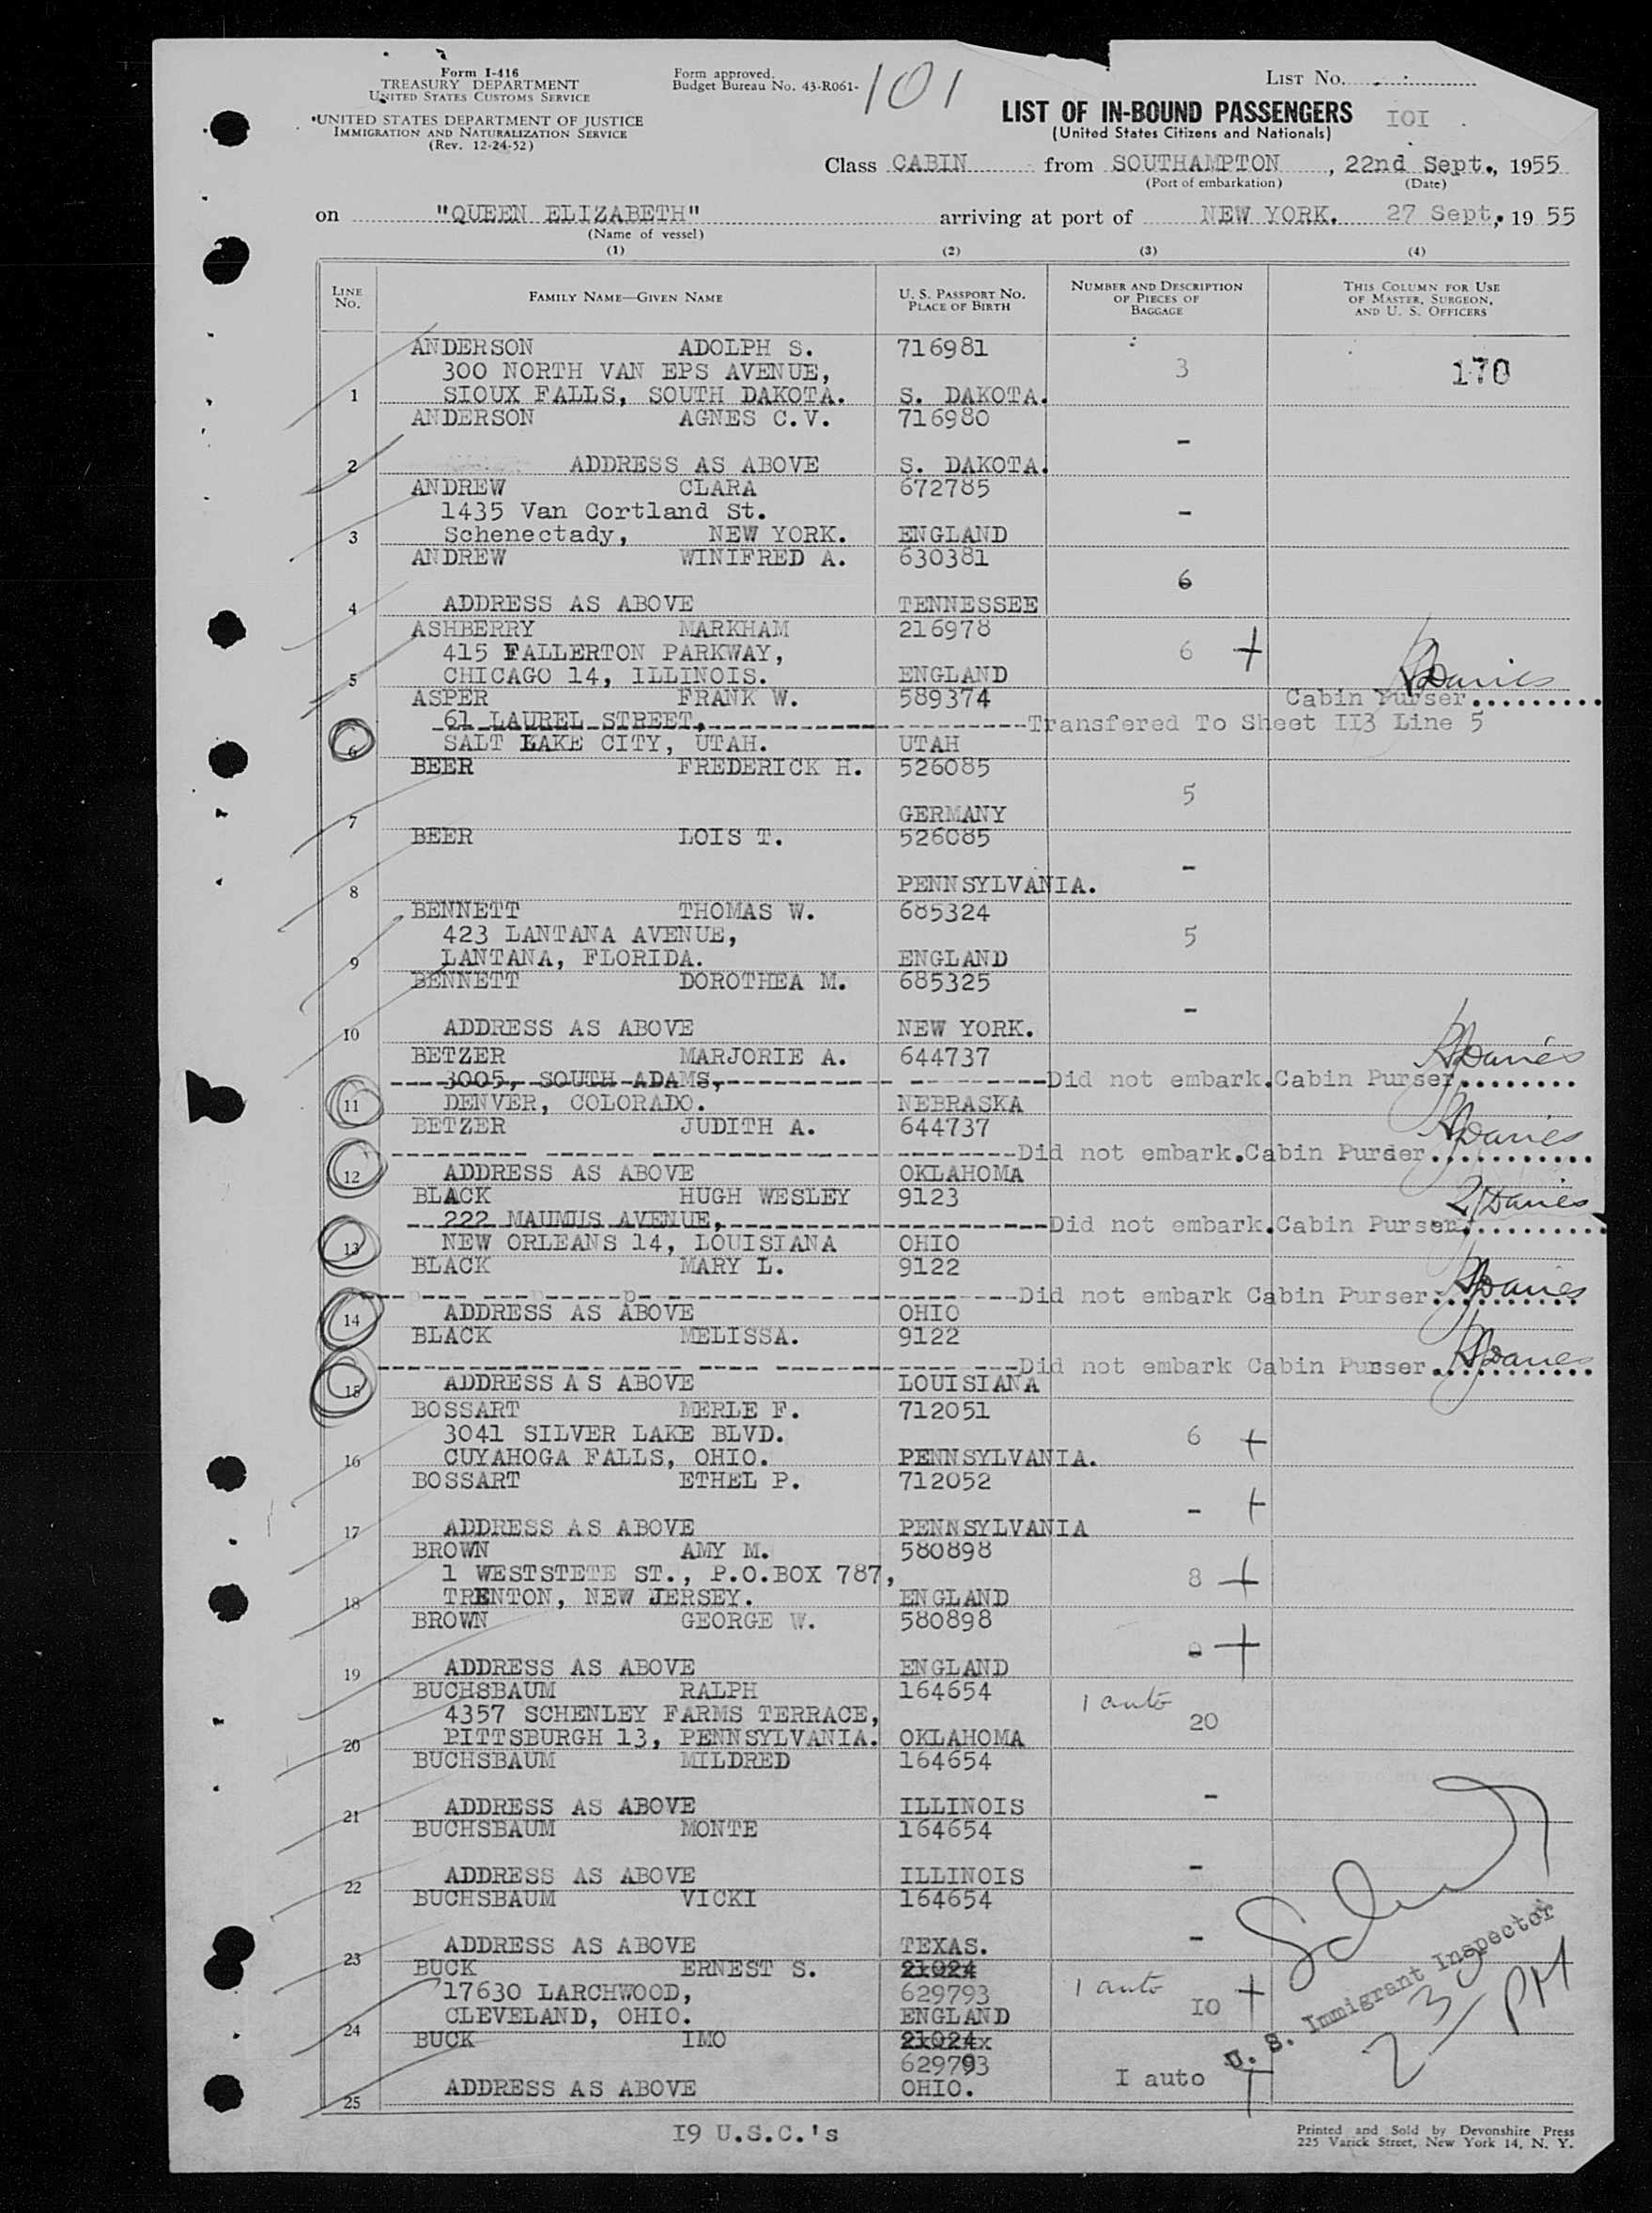 Form I-416
TREASURY DEPARTMENT
UNITED STATES CUSTOMS SERVICE
UNITED STATES DEPARTMENT OF JUSTICE
IMMIGRATION AND NATURALIZATION SERVICE
(Rev. 12-24-52)
Form approved.
Budget Bureau No. 43-R061-
101
LIST NO.
LIST OF IN-BOUND PASSENGERS IOI
(United States Citizens and Nationals)
Class CABIN from SOUTHAMPTON, 22nd Sept., 1955
(Port of embarkation) (Date)
on "QUEEN ELIZABETH" arriving at port of NEW YORK. 27 Sept, 1955
(Name of vessel)
(1) (2) (3) (4)
LINE NO. FAMILY NAME—GIVEN NAME U. S. PASSPORT NO. PLACE OF BIRTH NUMBER AND DESCRIPTION OF PIECES OF BAGGAGE THIS COLUMN FOR USE OF MASTER, SURGEON, AND U. S. OFFICERS
ANDERSON ADOLPH S. 716981
300 NORTH VAN EPS AVENUE, 3 170
1 SIOUX FALLS, SOUTH DAKOTA. S. DAKOTA.
ANDERSON AGNES C.V. 716980
-
2 ADDRESS AS ABOVE S. DAKOTA.
ANDREW CLARA 672785
1435 Van Cortland St. -
3 Schenectady, NEW YORK. ENGLAND
ANDREW WINIFRED A. 630381
6
4 ADDRESS AS ABOVE TENNESSEE
ASHBERRY MARKHAM 216978
415 FALLERTON PARKWAY, 6 +
5 CHICAGO 14, ILLINOIS. ENGLAND Davies
ASPER FRANK W. 589374 Cabin Purser.........
61 LAUREL STREET, Transfered To Sheet II3 Line 5
6 SALT LAKE CITY, UTAH. UTAH
BEER FREDERICK H. 526085
5
7 GERMANY
BEER LOIS T. 526085
-
8 PENNSYLVANIA.
BENNETT THOMAS W. 685324
423 LANTANA AVENUE, 5
9 LANTANA, FLORIDA. ENGLAND
BENNETT DOROTHEA M. 685325
-
10 ADDRESS AS ABOVE NEW YORK.
BETZER MARJORIE A. 644737 Davies
3005, SOUTH ADAMS, Did not embark.Cabin Purser........
11 DENVER, COLORADO. NEBRASKA
BETZER JUDITH A. 644737 Davies
Did not embark.Cabin Purser...........
12 ADDRESS AS ABOVE OKLAHOMA
BLACK HUGH WESLEY 9123 Davies
222 MAUMUS AVENUE, Did not embark.Cabin Purser..........
13 NEW ORLEANS 14, LOUISIANA OHIO
BLACK MARY L. 9122
Did not embark Cabin Purser.......... Davies
14 ADDRESS AS ABOVE OHIO
BLACK MELISSA. 9122
Did not embark Cabin Purser........... Davies
15 ADDRESS A S ABOVE LOUISIANA
BOSSART MERLE F. 712051
3041 SILVER LAKE BLVD. 6 +
16 CUYAHOGA FALLS, OHIO. PENNSYLVANIA.
BOSSART ETHEL P. 712052
- +
17 ADDRESS AS ABOVE PENNSYLVANIA
BROWN AMY M. 580898
1 WESTSTETE ST., P.O.BOX 787, 8 +
18 TRENTON, NEW JERSEY. ENGLAND
BROWN GEORGE W. 580898
- +
19 ADDRESS AS ABOVE ENGLAND
BUCHSBAUM RALPH 164654 1 auto
4357 SCHENLEY FARMS TERRACE, 20
20 PITTSBURGH 13, PENNSYLVANIA. OKLAHOMA
BUCHSBAUM MILDRED 164654
-
21 ADDRESS AS ABOVE ILLINOIS
BUCHSBAUM MONTE 164654
-
22 ADDRESS AS ABOVE ILLINOIS
BUCHSBAUM VICKI 164654
-
23 ADDRESS AS ABOVE TEXAS.
BUCK ERNEST S. 21024 1 auto
17630 LARCHWOOD, 629793 IO +
24 CLEVELAND, OHIO. ENGLAND
BUCK IMO 21024
629793 I auto +
25 ADDRESS AS ABOVE OHIO.
U. S. Immigrant Inspector
230 PM
I9 U.S.C.'s
Printed and Sold by Devonshire Press
225 Varick Street, New York 14, N. Y.